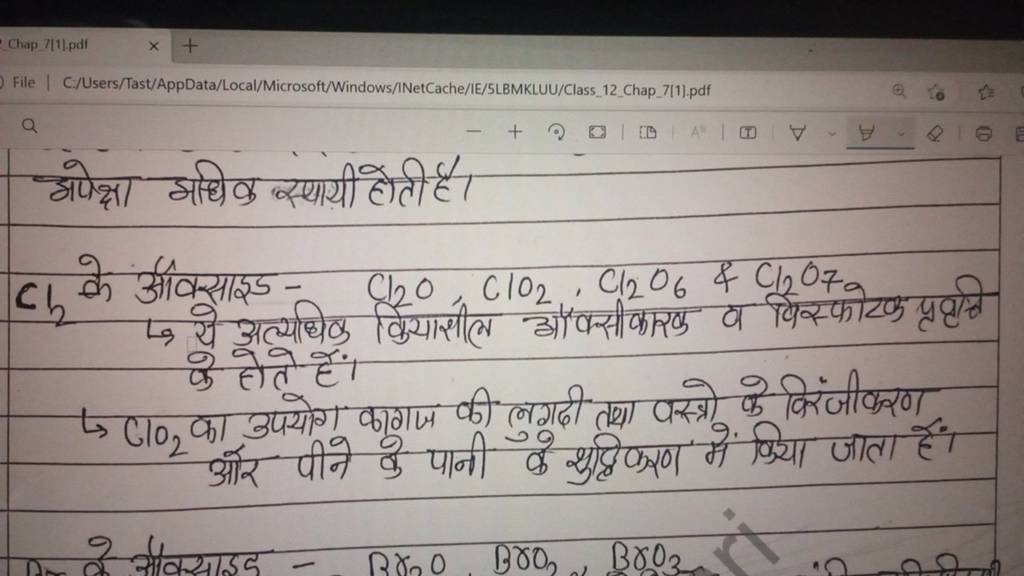 _Chap_7[1].pdf
File | C:/Users/Tast/AppData/Local/Microsoft/Windows/INetCache/IE/5LBMKLUU/Class_12_Chap_7[1].pdf
अपेक्षा अधिक स्थायी होती है।
Cl2 के ऑक्साइड - Cl2O, ClO2, Cl2O6 & Cl2O7
↳ ये अत्यधिक क्रियाशील ऑक्सीकारक व विस्फोटक प्रवृत्ति
के होते हैं।
↳ ClO2 का उपयोग कागज की लुगदी तथा वस्त्रो के विरंजीकरण
और पीने के पानी के शुद्धिकरण में किया जाता हैं।
के ऑक्साइड - Br2O, BrO2, BrO3